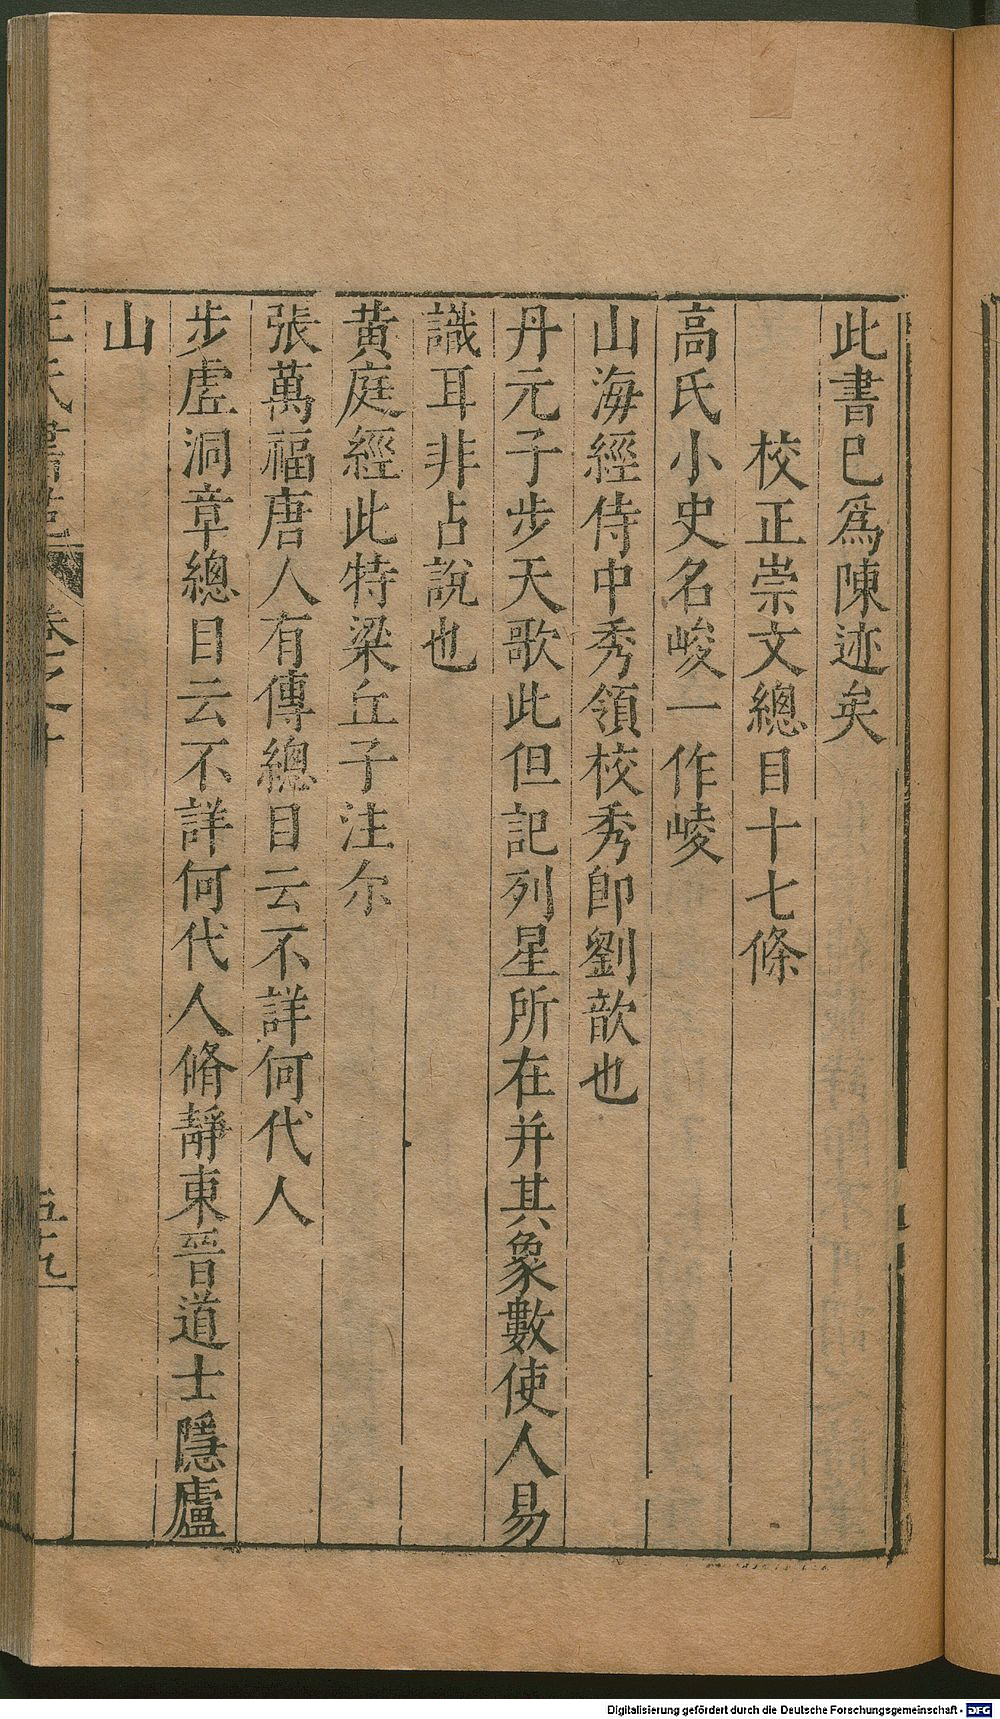 此書已爲陳迹矣
校正崇文總目十七條
高氏小史名峻一作崚
山海經侍中秀領校秀卽劉歆也
丹元子步天歌此但記列星所在并其象數使人易
識耳非占說也
黃庭經此特梁丘子注尔
張萬福唐人有傳總目云不詳何代人
步虛洞章總目云不詳何代人脩靜東晉道士隱廬
山
王氏書苑
卷之十
五十九
Digitalisierung gefördert durch die Deutsche Forschungsgemeinschaft - DFG